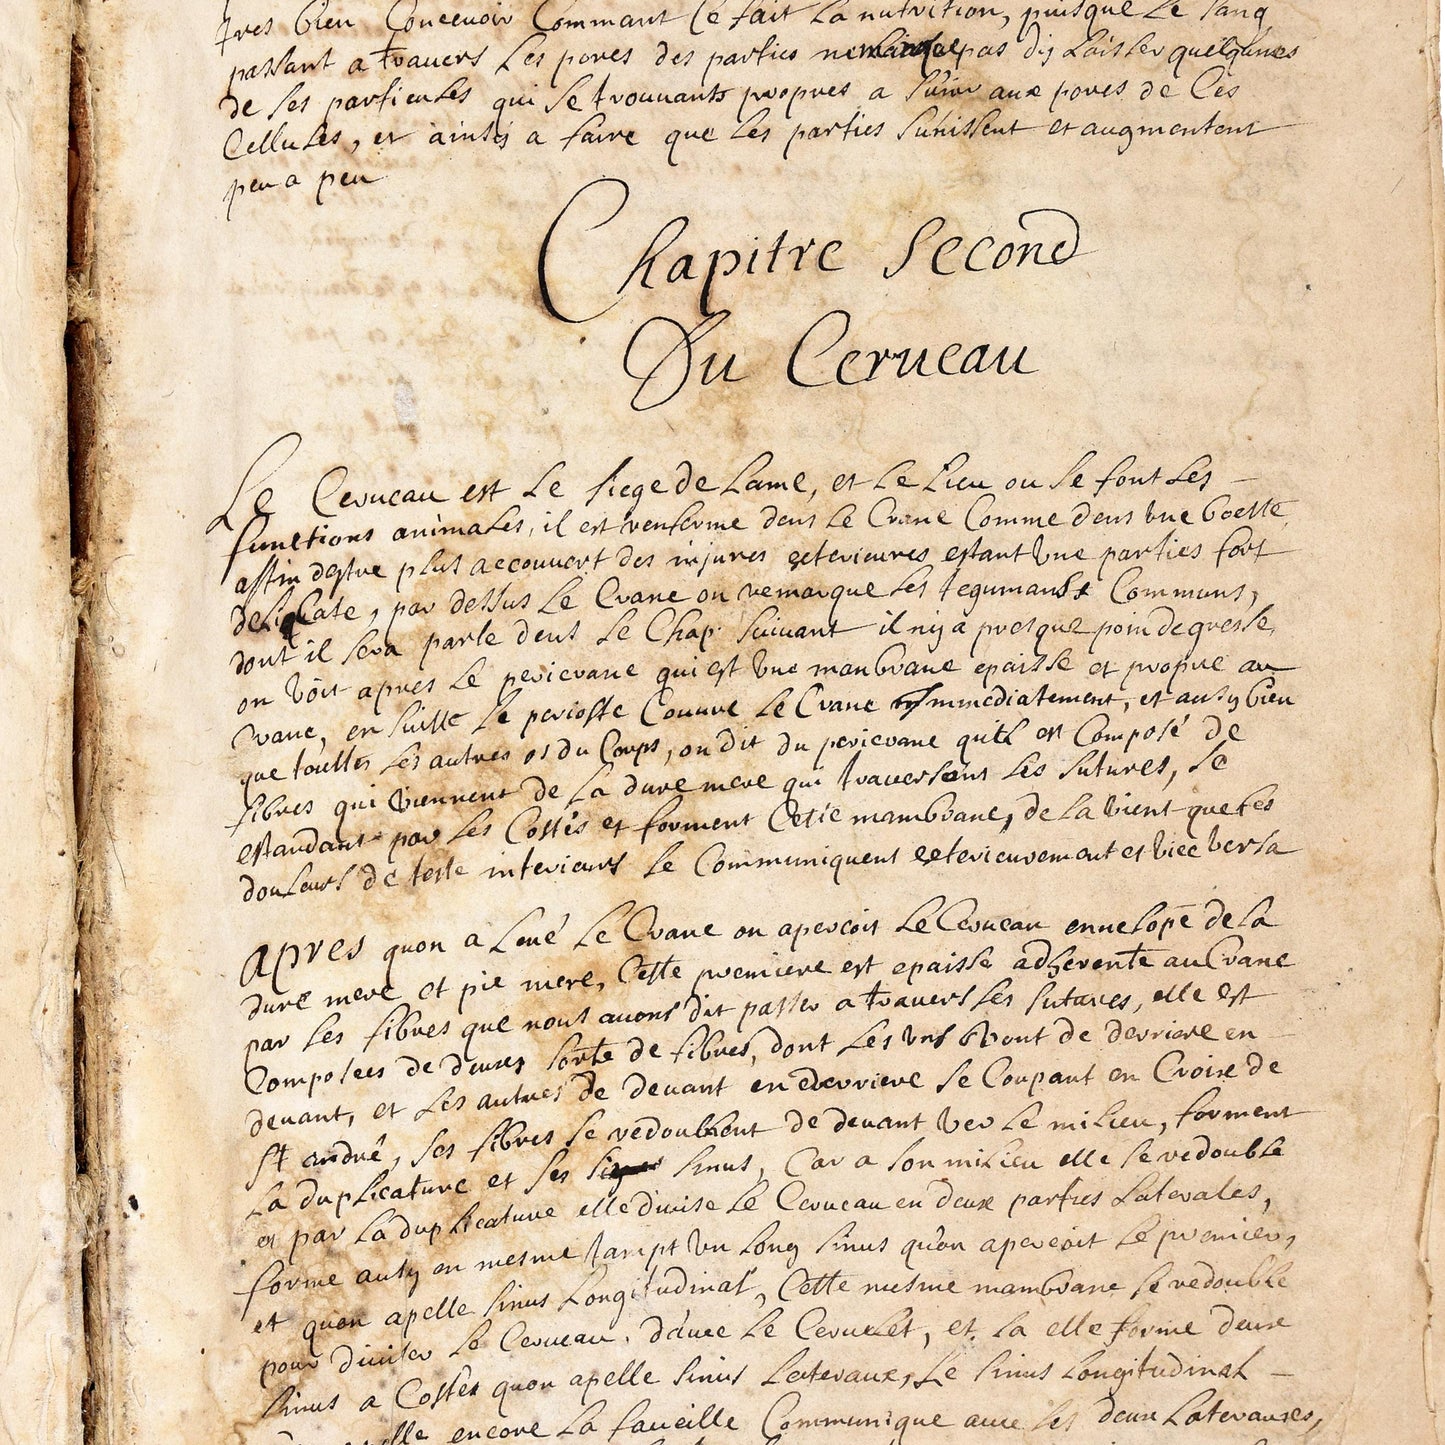 tres bien Conceuoir Commant Ce fait La nutrition, puisque Le sang
passant a trauers Les pores des parties ne manque pas dij Laisser quelqunes
de ses particules qui se trouuants propres a s'unir aux pores de Ces
Cellules, et ainsij a faire que Les parties sunissent et augmentent
peu a peu
Chapitre second
Du Cerueau
Le Cerueau est Le siege de Lame, et Le Lieu ou se font Les
functions animales, il est renferme dens Le Crane Comme dens vne boette
affin destre plus accouuert des injures exterieures estant vne parties fort
delicate, par dessus Le Crane on remarque Les tegumants Communs,
dont il sera parle dens Le Chap. suiuant il nija presque poin de gresse
on voit apres Le pericrane qui est vne manbrane epaisse et propre au
Crane, en suitte Le perioste Couure Le Crane immediatement, et ausy bien
que touttes Les autres os du Corps, on dit du pericrane quil est Composé de
fibres qui viennent de La dure mere qui trauersans Les sutures, se
estandant par Les Costés et forment Cette mambrane, de La vient que Les
douleurs de teste interieurs se Communiquent exterieurement et vice versa
apres quon a Leué Le Crane on apercoit Le Cerueau enuelopé de La
dure mere et pie mere, Cette premiere est epaisse adherente au Crane
par Les fibres que nous auons dit passer a trauers Les sutures, elle est
Composees de deuxes sorte de fibres, dont Les vns vont de derriere en
deuant, et Les autres de deuant en derriere se Coupant en Croix de
st andré, ses fibres se redoublent de deuant ver Le milieu, forment
La duplicature et ses sinus, Car a son milieu elle se redouble
et par La duplicature elle diuise Le Cerueau en deux parties Laterales,
forme ausy en mesme tampt vn Long sinus qu'on apercoit Le premier,
et quon apelle sinus Longitudinal, Cette mesme mambrane se redouble
pour diuiser Le Cerueau d'auec Le Ceruelet, et La elle forme deux
sinus a Costés quon apelle sinus Lateraux, Le sinus Longitudinal
encore La faucille Communique auec Les deux Lateraux,